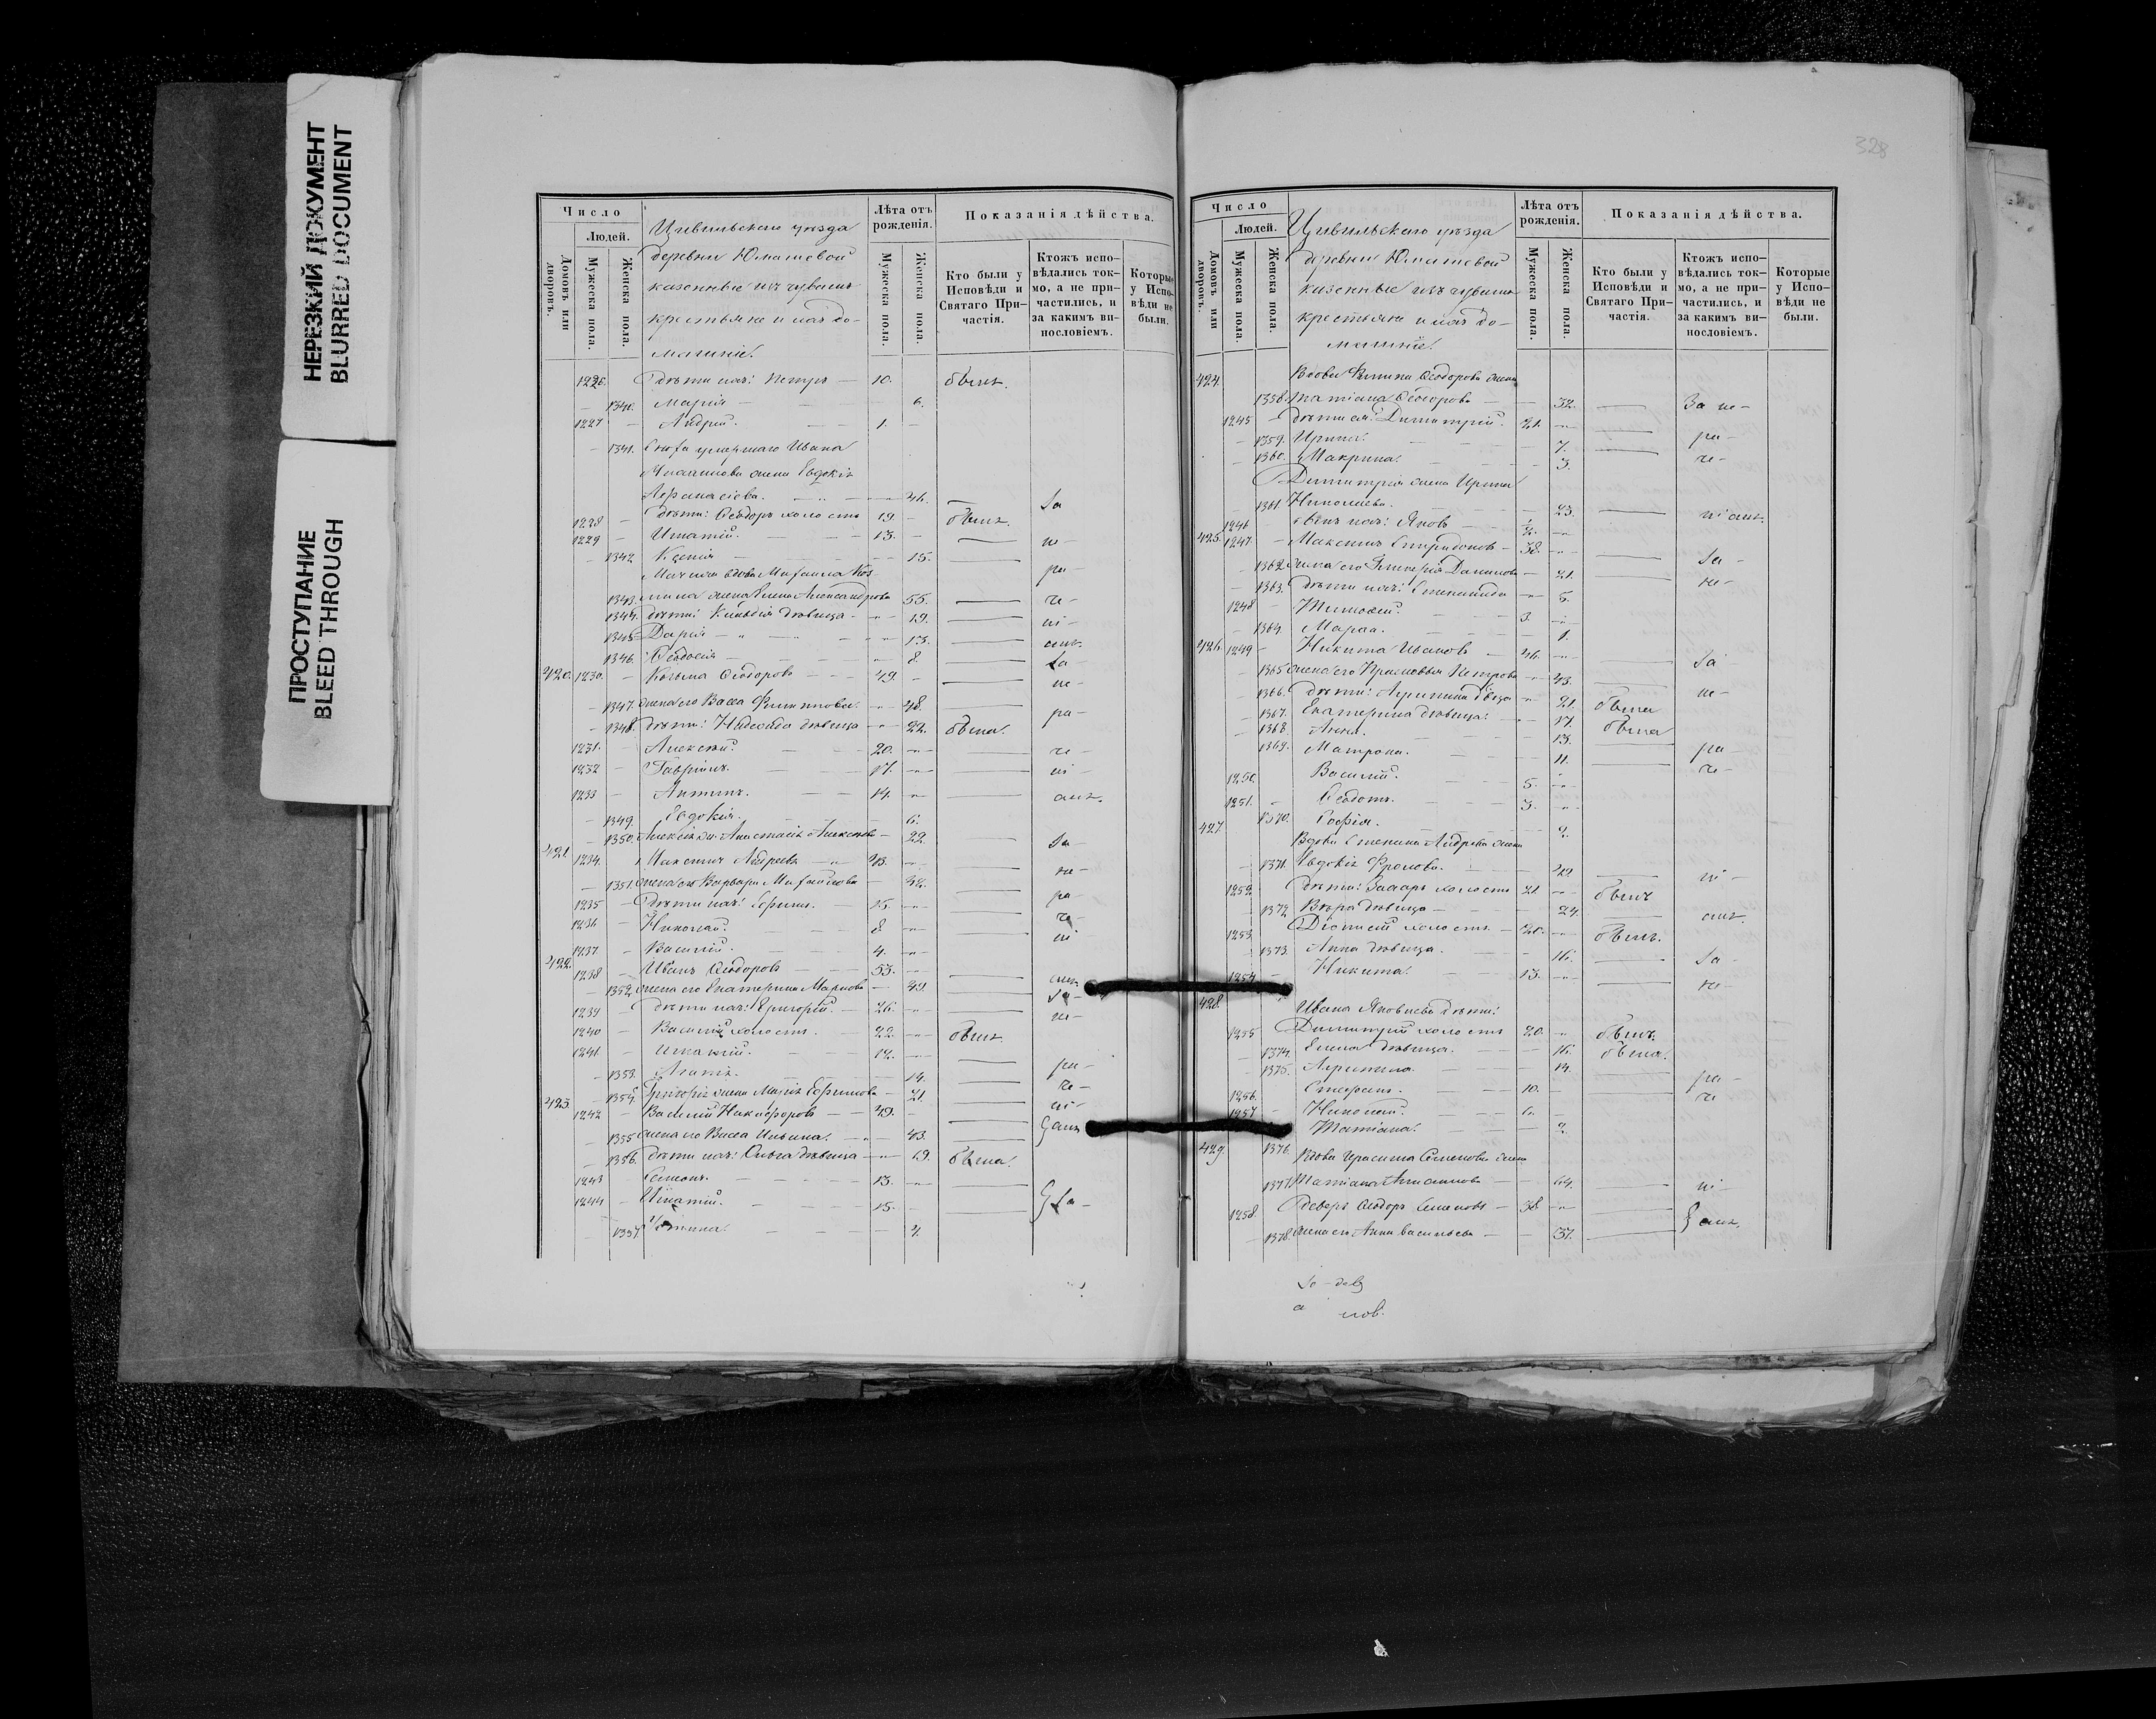 НЕРЕЗКИЙ ДОКУМЕНТ
BLURRED DOCUMENT
ПРОСТУПАНИЕ
BLEED THROUGH
Число
Людей.
Домовъ или дворовъ.
Мужеска пола.
Женска пола.
Цивильскаго уѣзда
деревни Юматевой
казенные изъ чувашъ
крестьяне и ихъ до-
машніе.
Лѣта отъ рожденія.
Мужеска пола.
Женска пола.
Показанія дѣйства.
Кто были у Исповѣди и Святаго При-частія.
Ктожъ испо-вѣдались ток-мо, а не при-частились, и за какимъ ви-нословіемъ.
Которые у Испо-вѣди не были.
1226. дѣти ихъ: Петръ — 10. былъ.
1340. Марія — 6.
1227 Андрей. — 1.
1341. Снoха умершаго Ивана
жена Евдокія
Афанасіева. — 46. За
1228 дѣти: Ѳеодоръ холостъ 19. былъ.
1229 Игнатій. — 13. не-
1342 Ксенія — 15. ра-
вдова Михаила Коз
1343. мина жена Елена Александрова 55. че-
1344. дѣти: Клавдія дѣвица — 19. ні-
1345 Дарія — 13. емъ.
1346. Ѳеодосія — 8. За
420. 1230. Козьма Ѳеодоровъ — 49. не-
1347. жена его Васса Филиппова. — 48. ра-
1348. дѣти: Надежда дѣвица — 22. была.
1231. Алексѣй. — 20. че-
1232 Гавріилъ. — 17. ні-
1233 Антипъ. — 14. емъ.
1349. Евдокія. — 6.
1350. Алексѣя ж. Анастасія Алексѣева — 22. За-
421. 1234. Максимъ Андреевъ — 43. не-
1351. жена его Варвара Михайлова — 32. ра-
1235 дѣти ихъ: Ефимъ. — 15. че-
1236 Николай. — 8. ні
1237. Василій. — 4.
422. 1238 Иванъ Ѳеодоровъ — 53. емъ.
1352. жена его Екатерина Маркова — 49. За-
1239 дѣти ихъ: Григорій. — 26. не-
1240 Василій холостъ. — 22. былъ.
1241. Игнатій. — 12.
1353. Агапія. — 14. ра-
1354. Григорія жена Марія Ефимова — 21. че-
423. 1242 Василій Никифоровъ — 49. ні-
1355 жена его Васса Ильина. — 43. емъ
1356. дѣти ихъ: Ольга дѣвица — 19. была.
1243 Семенъ. — 13.
1244 Игнатій. — 15. За-
1357. Устина. — 4.
328
Число
Людей.
Домовъ или дворовъ.
Мужеска пола.
Женска пола.
Цивильскаго уѣзда
деревни Юматевой
казенные изъ чувашъ
крестьяне и ихъ до-
машніе.
Лѣта отъ рожденія.
Мужеска пола.
Женска пола.
Показанія дѣйства.
Кто были у Исповѣди и Святаго При-частія.
Ктожъ испо-вѣдались ток-мо, а не при-частились, и за какимъ ви-нословіемъ.
Которые у Испо-вѣди не были.
424. Вдова Филипа Ѳеодорова жена
1358. Татіана Ѳеодорова — 32. За не-
1245 дѣти ея: Димитрій. 21. ра-
1359. Ирина. — 7. че-
1360. Макрина. — 3.
Димитрія жена Ирина
1361 Николаева. — 23. ніемъ.
1246 сынъ ихъ: Яковъ — 1/2.
425. 1247. Максимъ Спиридоновъ — 38. За-
1362 жена его Гликерія Данилова — 21. не-
1363. дѣти ихъ: Степанида — 5.
1248 Тимоѳей. 3.
1364. Марѳа. — 1.
426. 1249 Никита Ивановъ — 46. За
1365 жена его Прасковья Петрова — 43. не-
1366. дѣти: Агрипина дѣвица — 21. была
1367. Екатерина дѣвица: — 17. была
1368. Анна. — 13. ра-
1369. Матрона. — 11. че-
1250. Василій. — 5.
1251. Ѳеодотъ. 3.
1370. Софія. — 2.
427. Вдова Степана Андреева жена
1371. Евдокія Фролова. — 49. ні-
1252. дѣти: Захаръ холостъ 21. былъ
1372 Вѣра дѣвица — 24. емъ.
1253 Діонисій холостъ. — 20. былъ.
1373. Анна дѣвица. — 16. За-
1254 Никита. — 13. не-
428. Ивана Яковлева дѣти:
1255 Димитрій холостъ 20. былъ.
1374. Елена дѣвица. — 16. была.
1375. Агрипина. — 14. ра-
1256. Стефанъ. — 10. че
1257 Николай. — 6.
1376. Татіана. — 2.
429. Вдова Герасима Семенова жена
1377. Татіана — 64. ні-
1258. деверь Ѳеодоръ Семеновъ — 38 емъ.
1378. жена его Анна Васильева — 37.